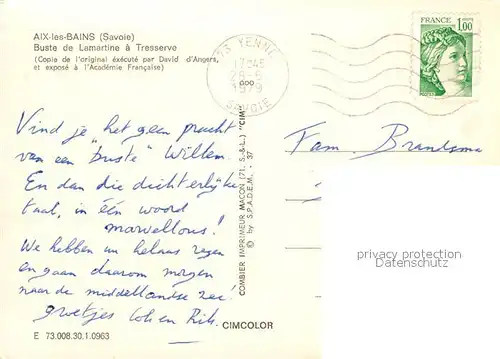 AIX-les-BAINS (Savoie)
Buste de Lamartine à Tresserve
(Copie de l'original éxécuté par David d'Angers,
et exposé à l'Académie Française)
73 YENNE
17 H 45
28-6
1979
SAVOIE
FRANCE
1,00
POSTES
Vind je "het geen pracht
van een "buste" Willem.
En dan die dichterlijke
taal, in één woord
marvellous!
We hebben nu helaas regen
en gaan daarom morgen
naar de middellandse zee!
groetjes Loh en Rik.
Fam. Brandsma
privacy protection
Datenschutz
COMBIER IMPRIMEUR MACON (71. S.-&-L.) "CIM"
© by S.P.A.D.E.M. - 37
CIMCOLOR
E 73.008.30.1.0963